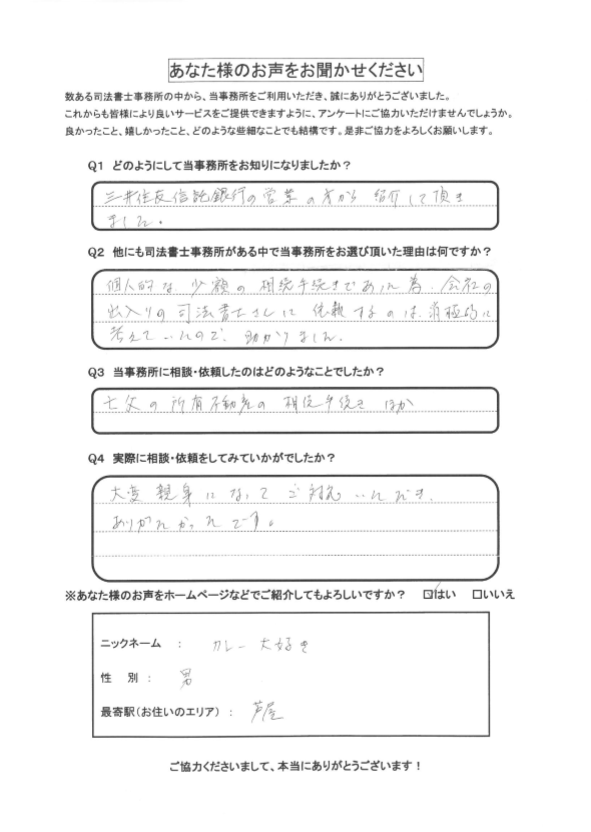 あなた様のお声をお聞かせください
数ある司法書士事務所の中から、当事務所をご利用いただき、誠にありがとうございました。
これからも皆様により良いサービスをご提供できますように、アンケートにご協力いただけませんでしょうか。
良かったこと、嬉しかったこと、どのような些細なことでも結構です。是非ご協力をよろしくお願いします。
Q1 どのようにして当事務所をお知りになりましたか？
三井住友信託銀行の営業の方から 紹介して頂き
ました。
Q2 他にも司法書士事務所がある中で当事務所をお選び頂いた理由は何ですか？
個人的な 少額の 相続手続きであった為、会社の
出入りの司法書士さんに 依頼するのは、消極的に
考えていたので、助かりました。
Q3 当事務所に相談・依頼したのはどのようなことでしたか？
亡父の所有不動産の 相続手続き ほか
Q4 実際に相談・依頼をしてみていかがでしたか？
大変 親身になって ご対応 いただき、
ありがたかったです。
※あなた様のお声をホームページなどでご紹介してもよろしいですか？ ☑はい □いいえ
ニックネーム ： カレー大好き
性 別 ： 男
最寄駅（お住いのエリア） ： 芦屋
ご協力くださいまして、本当にありがとうございます！